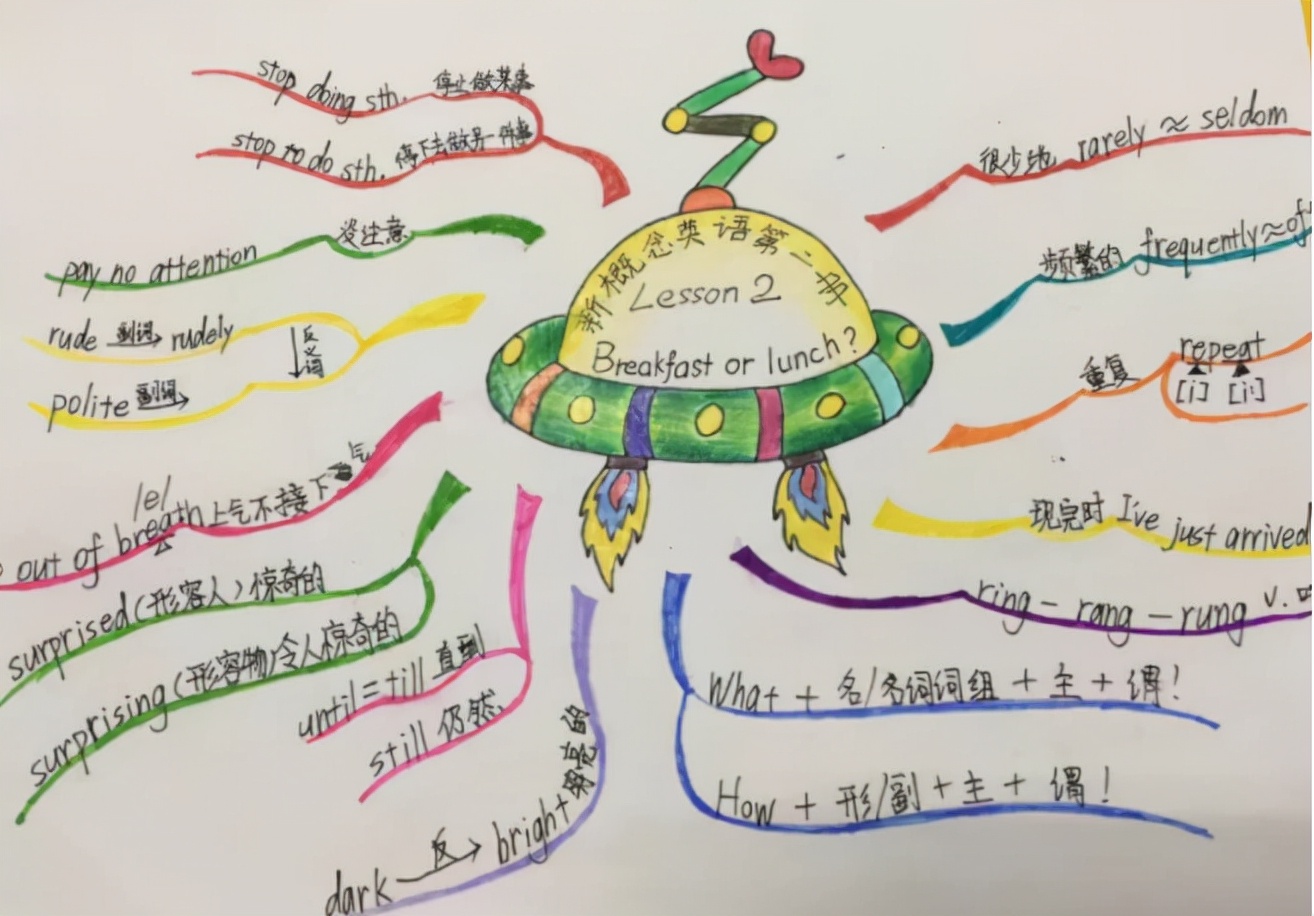 新概念英语第二册
Lesson 2
Breakfast or lunch?
stop doing sth. 停止做某事
stop to do sth. 停下去做另一件事
pay no attention 没注意
rude 副词→ rudely
↓反义词
polite 副词→
/e/
out of breath 上气不接下气
surprised (形容人) 惊奇的
surprising (形容物) 令人惊奇的
until = till 直到
still 仍然
dark 反→ bright 明亮的
很少地 rarely ≈ seldom
频繁的 frequently ≈ of
重复 repeat
[i] [i:]
现完时 I've just arrived
ring - rang - rung v.
What + 名/名词词组 + 主 + 谓!
How + 形/副 + 主 + 谓!